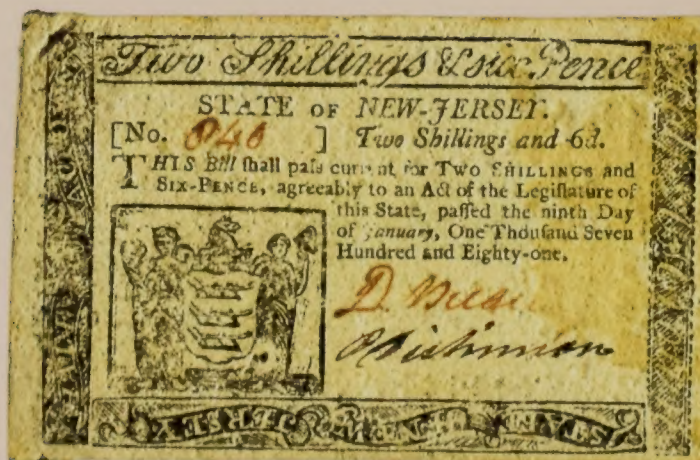 Two Shillings & six Pence
STATE OF NEW-JERSEY.
[No. 846 ] Two Shillings and 6d.
THIS Bill ſhall paſs current for TWO SHILLINGS and
SIX-PENCE, agreeably to an Act of the Legiſlature of
this State, paſſed the ninth Day
of January, One Thouſand Seven
Hundred and Eighty-one.
D
STATE OF NEW JERSEY